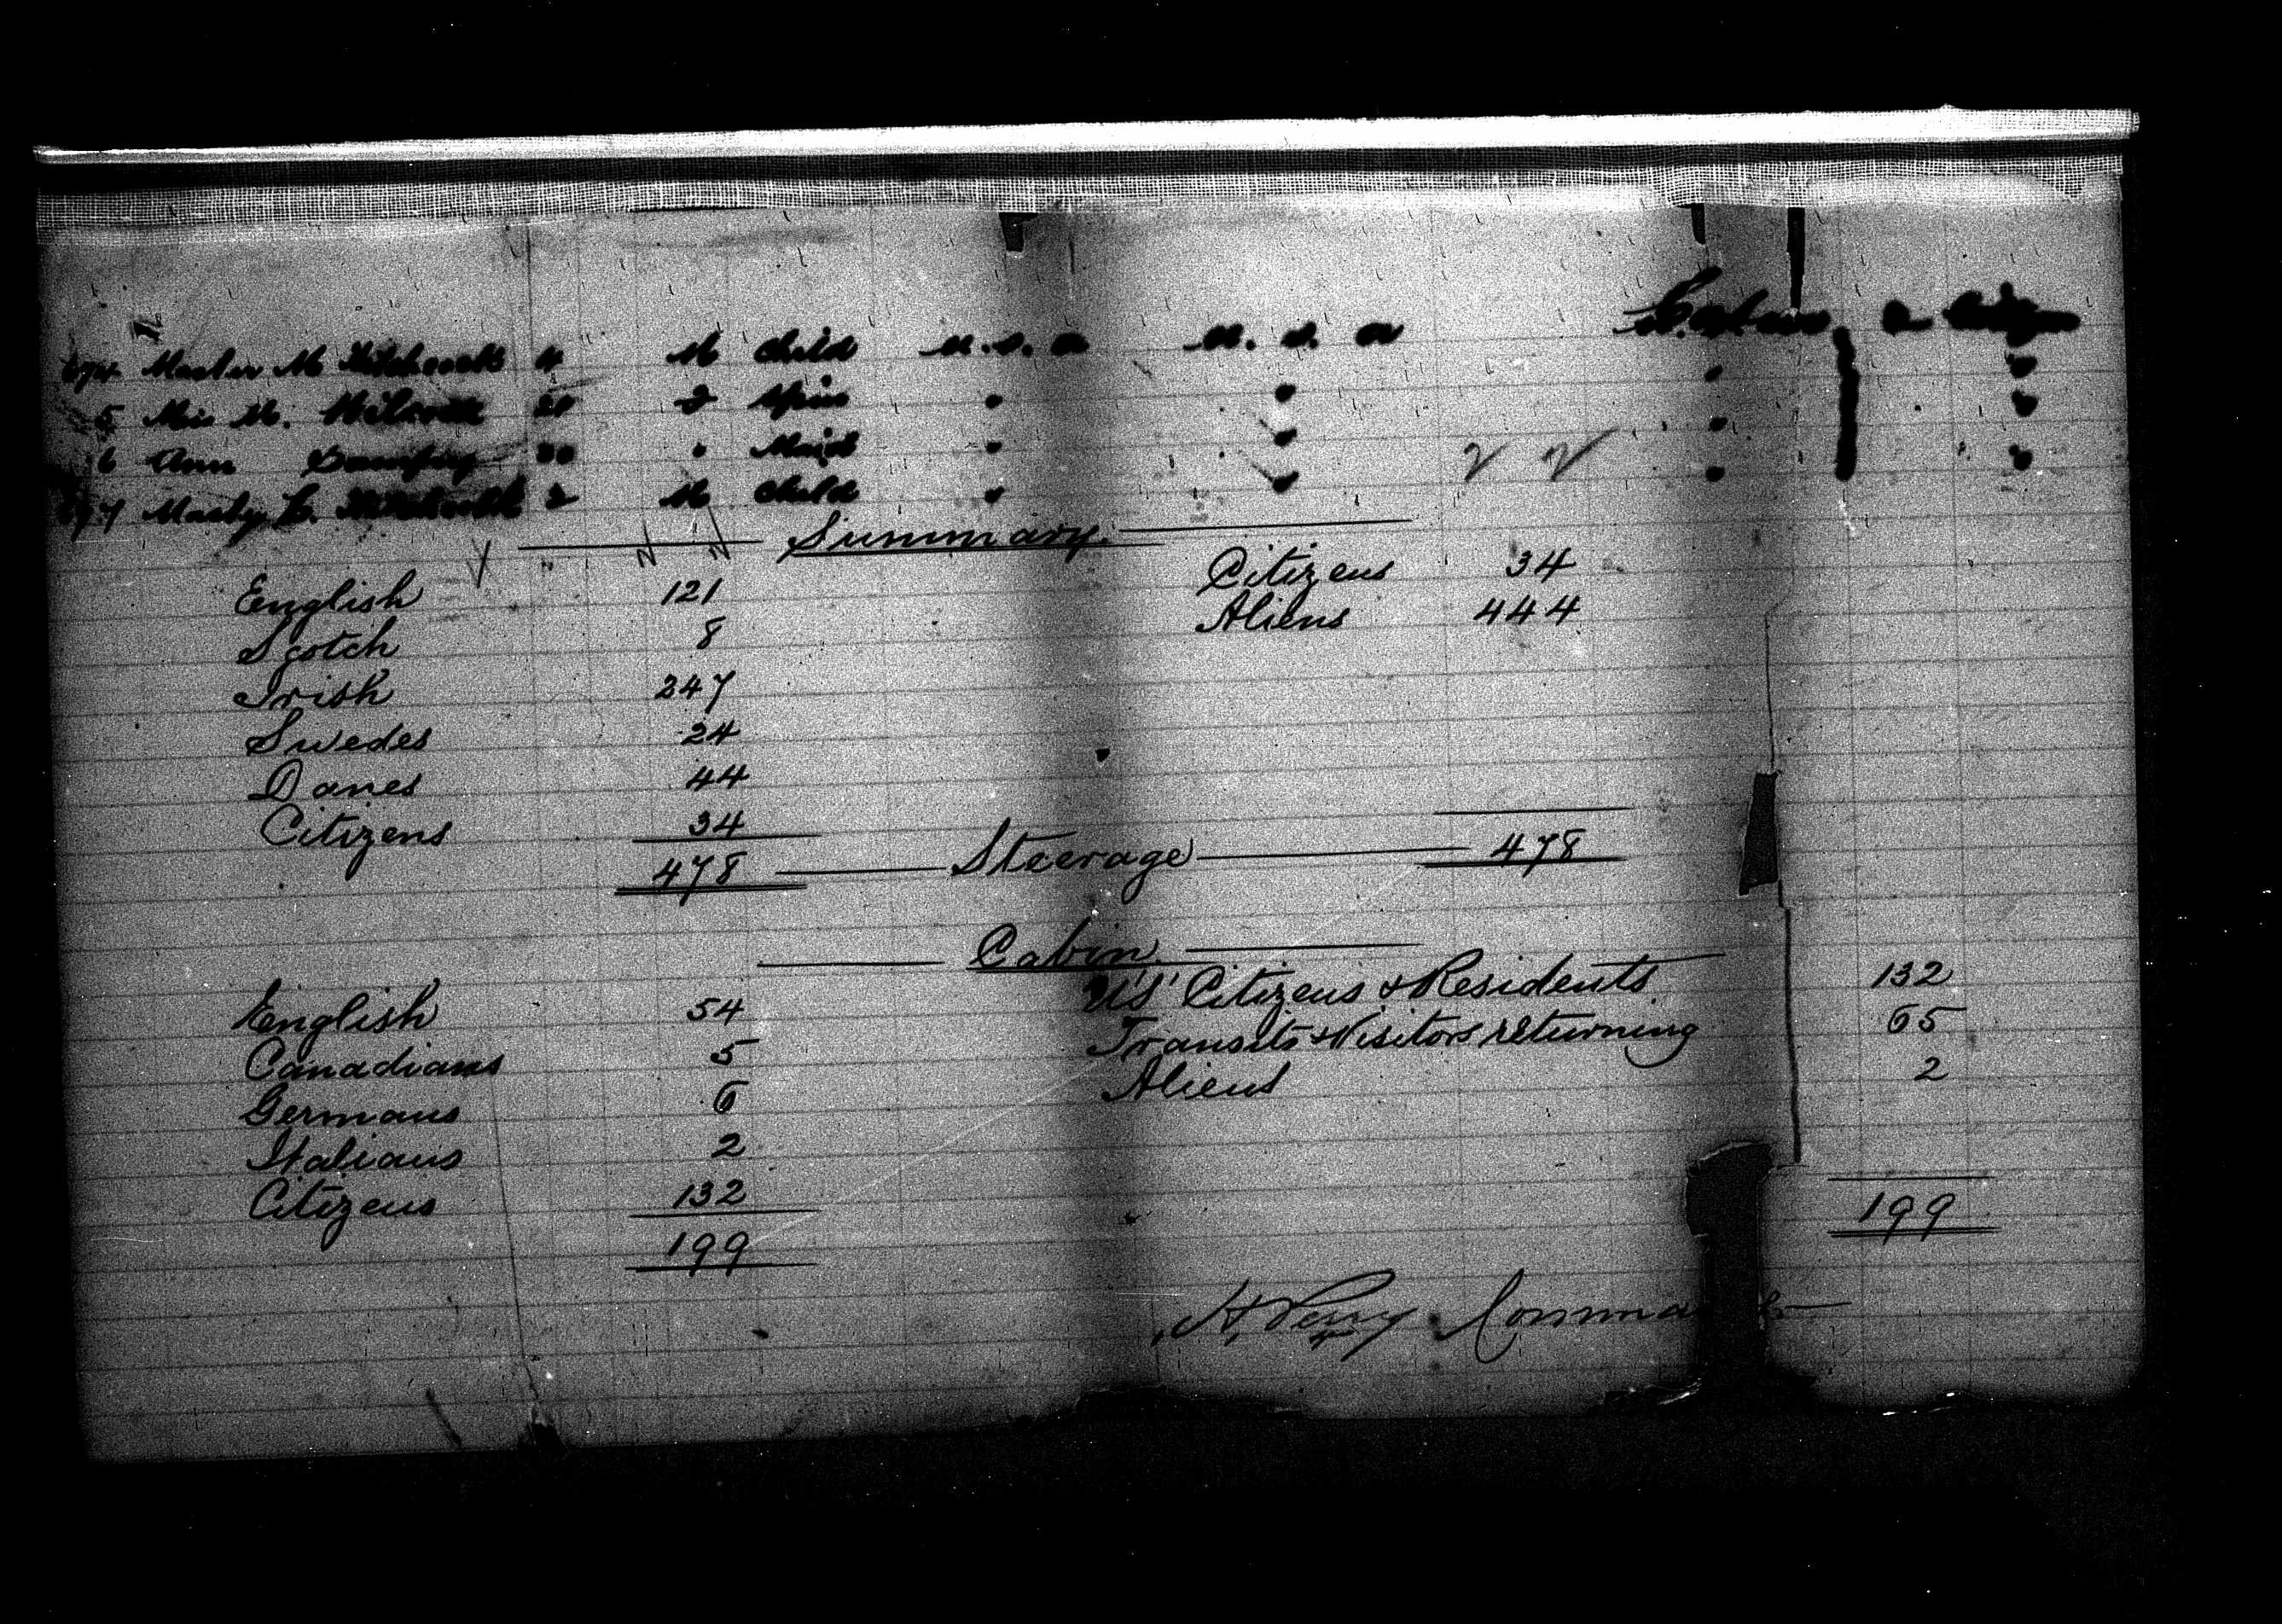 674 Master M Hitchcock 4 M Child U.S.a U.S.a Saloon a Citizen
5 Miss M. 21 F Spins " " " "
6 Ann 30 " Maid " " " "
677 Master C. Hitchcock 2 M Child " " " "
Summary.
English 121 Citizens 34
Scotch 8 Aliens 444
Irish 247
Swedes 24
Danes 44
Citizens 34
478 Steerage 478
Cabin.
English 54 U.S. Citizens & Residents 132
Canadians 5 Transits & Visitors returning 65
Germans 6 Aliens 2
Italians 2
Citizens 132
199 199
H Perry Comma